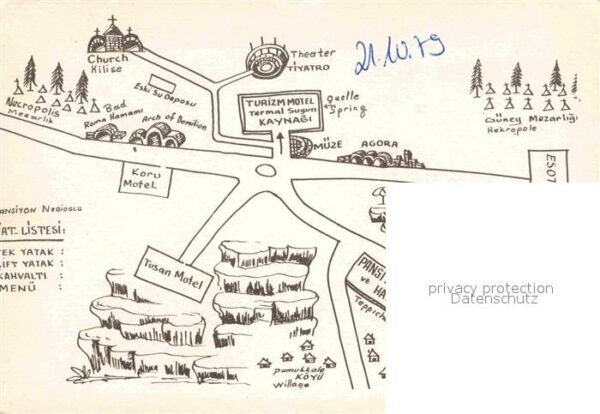 21.10.79
Church
Kilise
Theater
TİYATRO
Eski Su Deposu
TURİZM MOTEL
Termal Suyun
KAYNAĞI
Quelle
Spring
Necropolis
Mezarlık
Bad
Roma Hamamı
Arch of Domition
MÜZE
AGORA
Güney Mezarlığı
Nekropole
Koru
Motel
ANSİYON NEBİOĞLU
AT LİSTESİ:
TEK YATAK :
ÇİFT YATAK :
KAHVALTI :
MENÜ :
Tusan Motel
PANSİ
VE HA
Teppich
Pamukkale
KÖYÜ
Village
privacy protection
Datenschutz